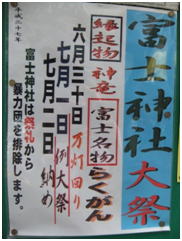 富士神社大祭
縁起物 神竜
富士名物 らくがん
六月三十日 万灯回り
七月一日 例大祭
七月二日 納め
富士神社は祭礼から
暴力団を排除します。
平成二十七年